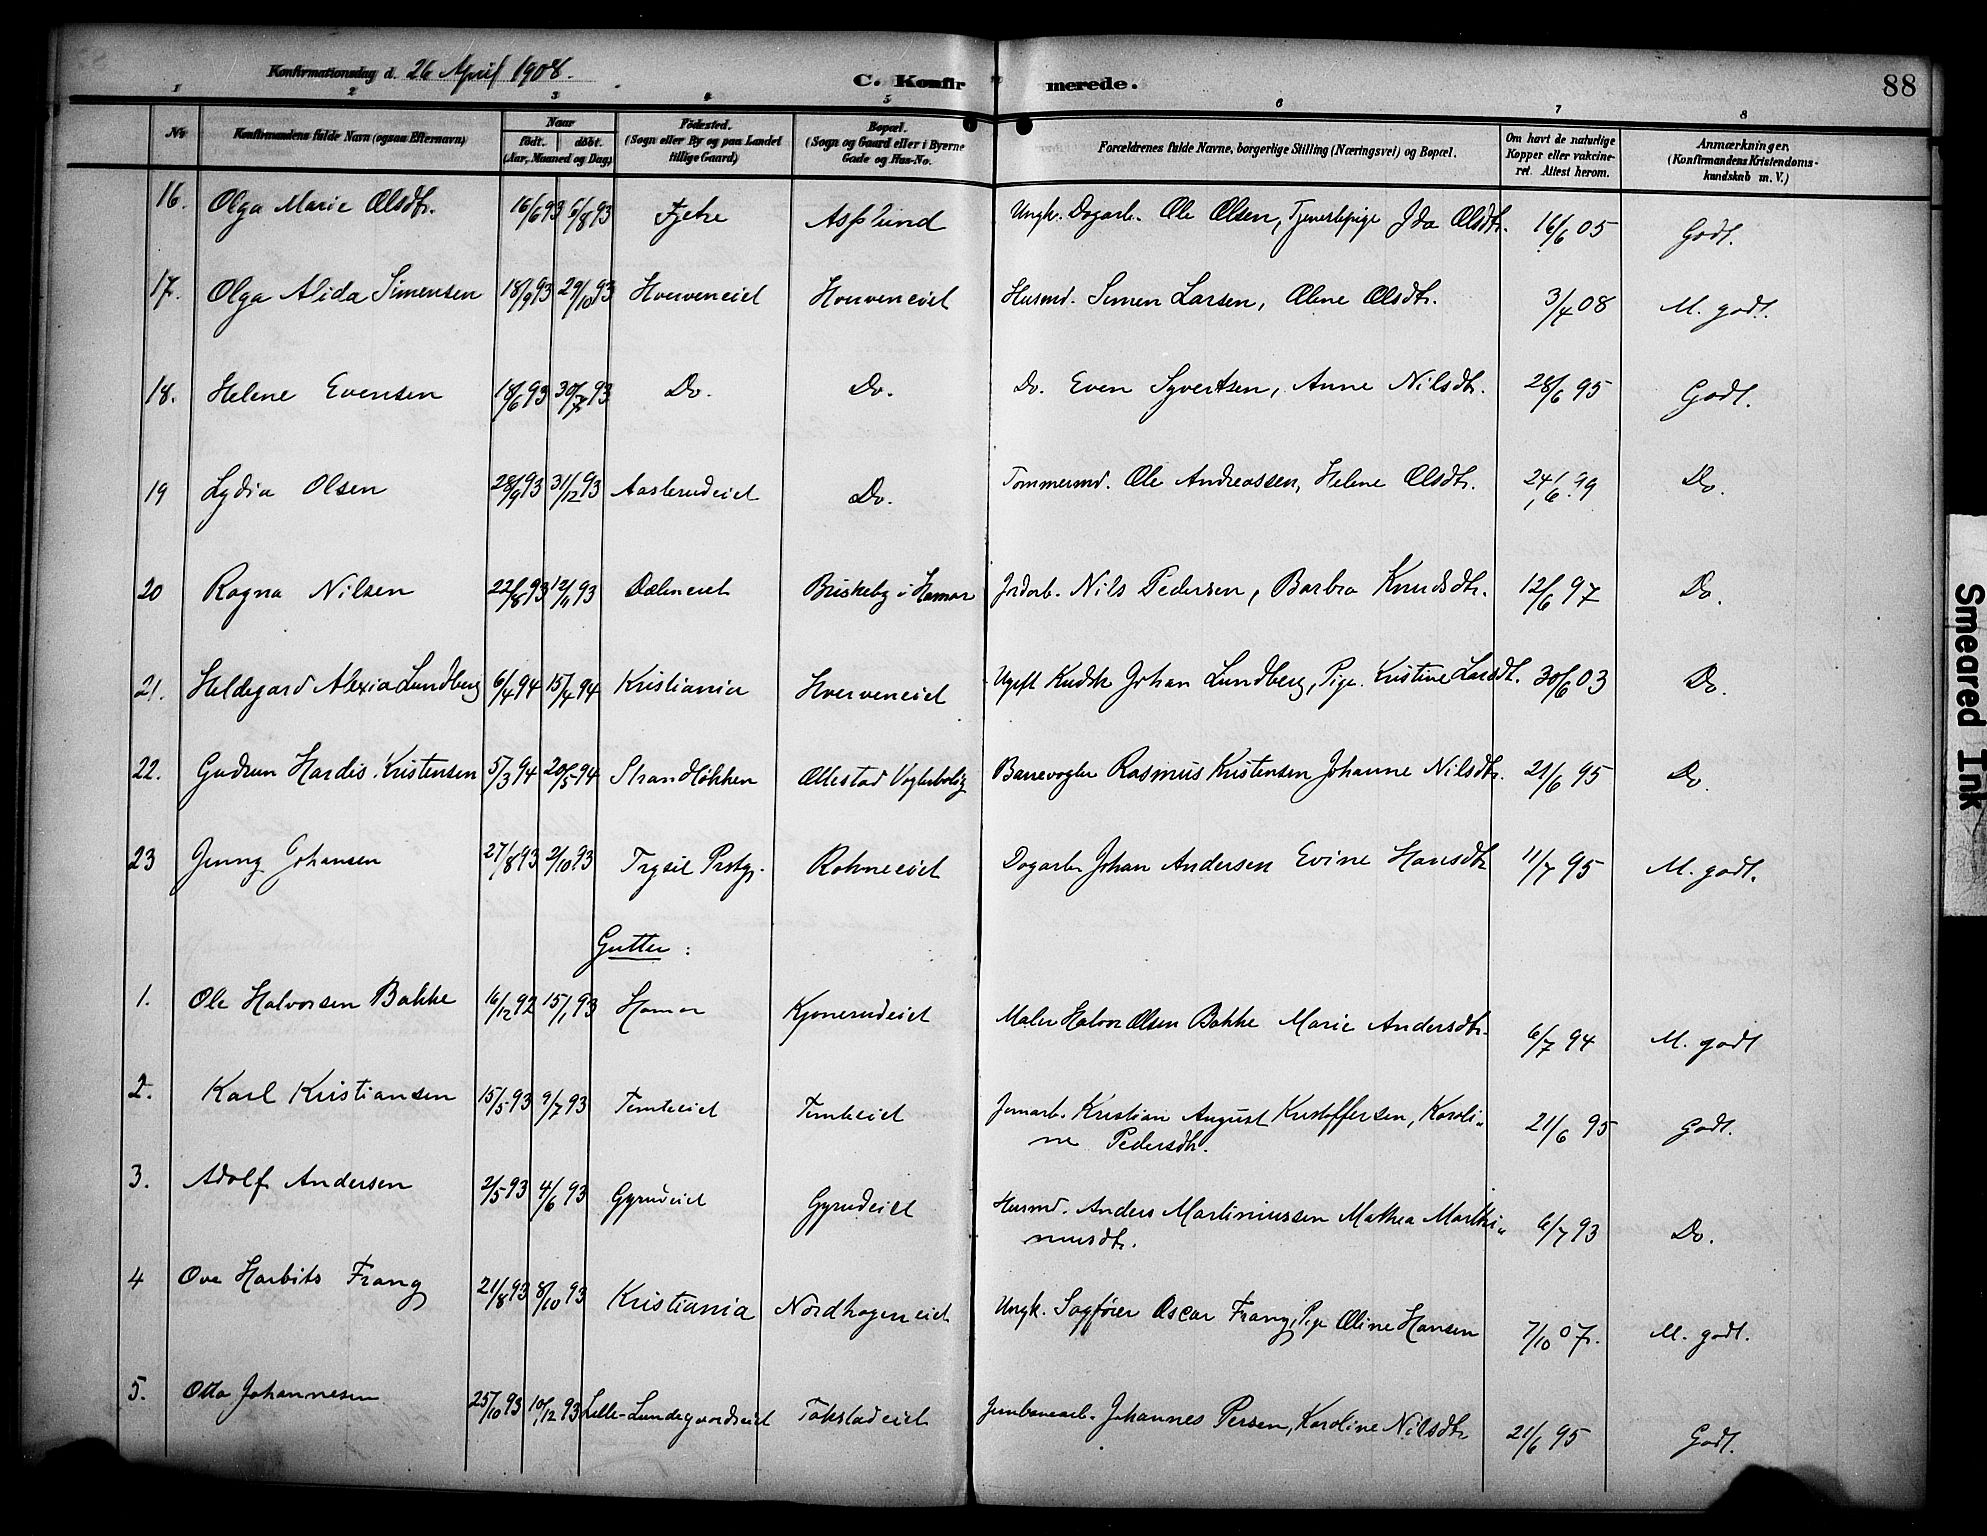 Konfirmationsdag d. 26 April 1908. C. Konfirmerede. 88
1 2 3 4 5 6 7 8
No Konfirmandens fulde Navn (ogsaa Efternavn) Naar født. døbt. (Aar, Maaned og Dag) Fødested. (Sogn eller By og paa Landet tillige Gaard) Bopæl. (Sogn og Gaard eller i Byerne Gade og Hus-No. Forældrenes fulde Navne, borgerlige Stilling (Næringsvei) og Bopæl. Om havt de naturlige Kopper eller vakcineret. Attest herom. Anmærkninger. (Konfirmandens Kristendomskundskab m. V.)
16. Olga Marie Olsdtr. 16/6 93 6/8 93 Fjetre Asplund Ungk. Dagarb. Ole Olsen, Tjenestepige Ida Olsdtr. 16/6 05 Godt.
17. Olga Alida Simensen 18/9 93 29/10 93 Hverveneiet Hverveneiet Husmd. Simen Larsen, Oline Olsdtr. 3/4 08 M. godt.
18. Helene Evensen 18/6 93 30/7 93 Do. Do. Do. Even Syvertsen, Anne Nilsdtr. 28/6 95 Godt.
19 Lydia Olsen 28/9 93 31/12 93 Aasterudeiet Do. Tømmermd. Ole Andreassen, Helene Olsdtr. 24/6 99 Do.
20 Ragna Nilsen 22/8 93 12/11 93 Dæleneiet Briskeby i Hamar Jordarb. Nils Pedersen, Barbra Knudsdtr. 12/6 97 Do.
21. Hildegard Alexia Lundberg 6/4 94 15/4 94 Kristiania Hverveneiet Ugift Kudsk Johan Lundberg, Pige Kristine Larsdt. 30/6 03 Do.
22. Gudrun Hardis Kristensen 5/3 94 20/5 94 Strandløkken Ottestad Vogterbolig Banevogter Rasmus Kristensen Johanne Nilsdtr. 21/6 95 Do.
23 Jenny Johansen 27/8 93 2/10 93 Trysil Prstgj. Rohneeiet Dagarb. Johan Andersen Evine Hansdtr 11/7 95 M. godt.
Gutter:
1. Ole Halvorsen Bakke 16/12 92 15/1 93 Hamar Kjonerudeiet Maler Halvor Olsen Bakke Marie Andersdtr. 6/7 94 M. godt
2. Karl Kristiansen 15/5 93 9/7 93 Tomteeiet Tomteeiet Jernarb. Kristian August Kristoffersen, Karoli-
ne Pedersdtr. 21/6 95 Godt.
3. Adolf Andersen 2/5 93 4/6 93 Gyrudeiet Gyrudeiet Husmd. Anders Martiniussen Mathea Marthi-
nusdtr. 6/7 93 Do.
4 Ove Harbits Frang 21/8 93 8/10 93 Kristiania Nordhageneiet Ungk. Sagfører Oscar Frang, Pige Oline Hansen 7/10 07. M. godt.
5. Otto Johannesen 25/10 93 10/12 93 Lille-Lundegaardseiet Tokstadeiet Jernbanearb. Johannes Persen, Karoline Nilsdtr 21/6 95 Godt.
Smeared Ink